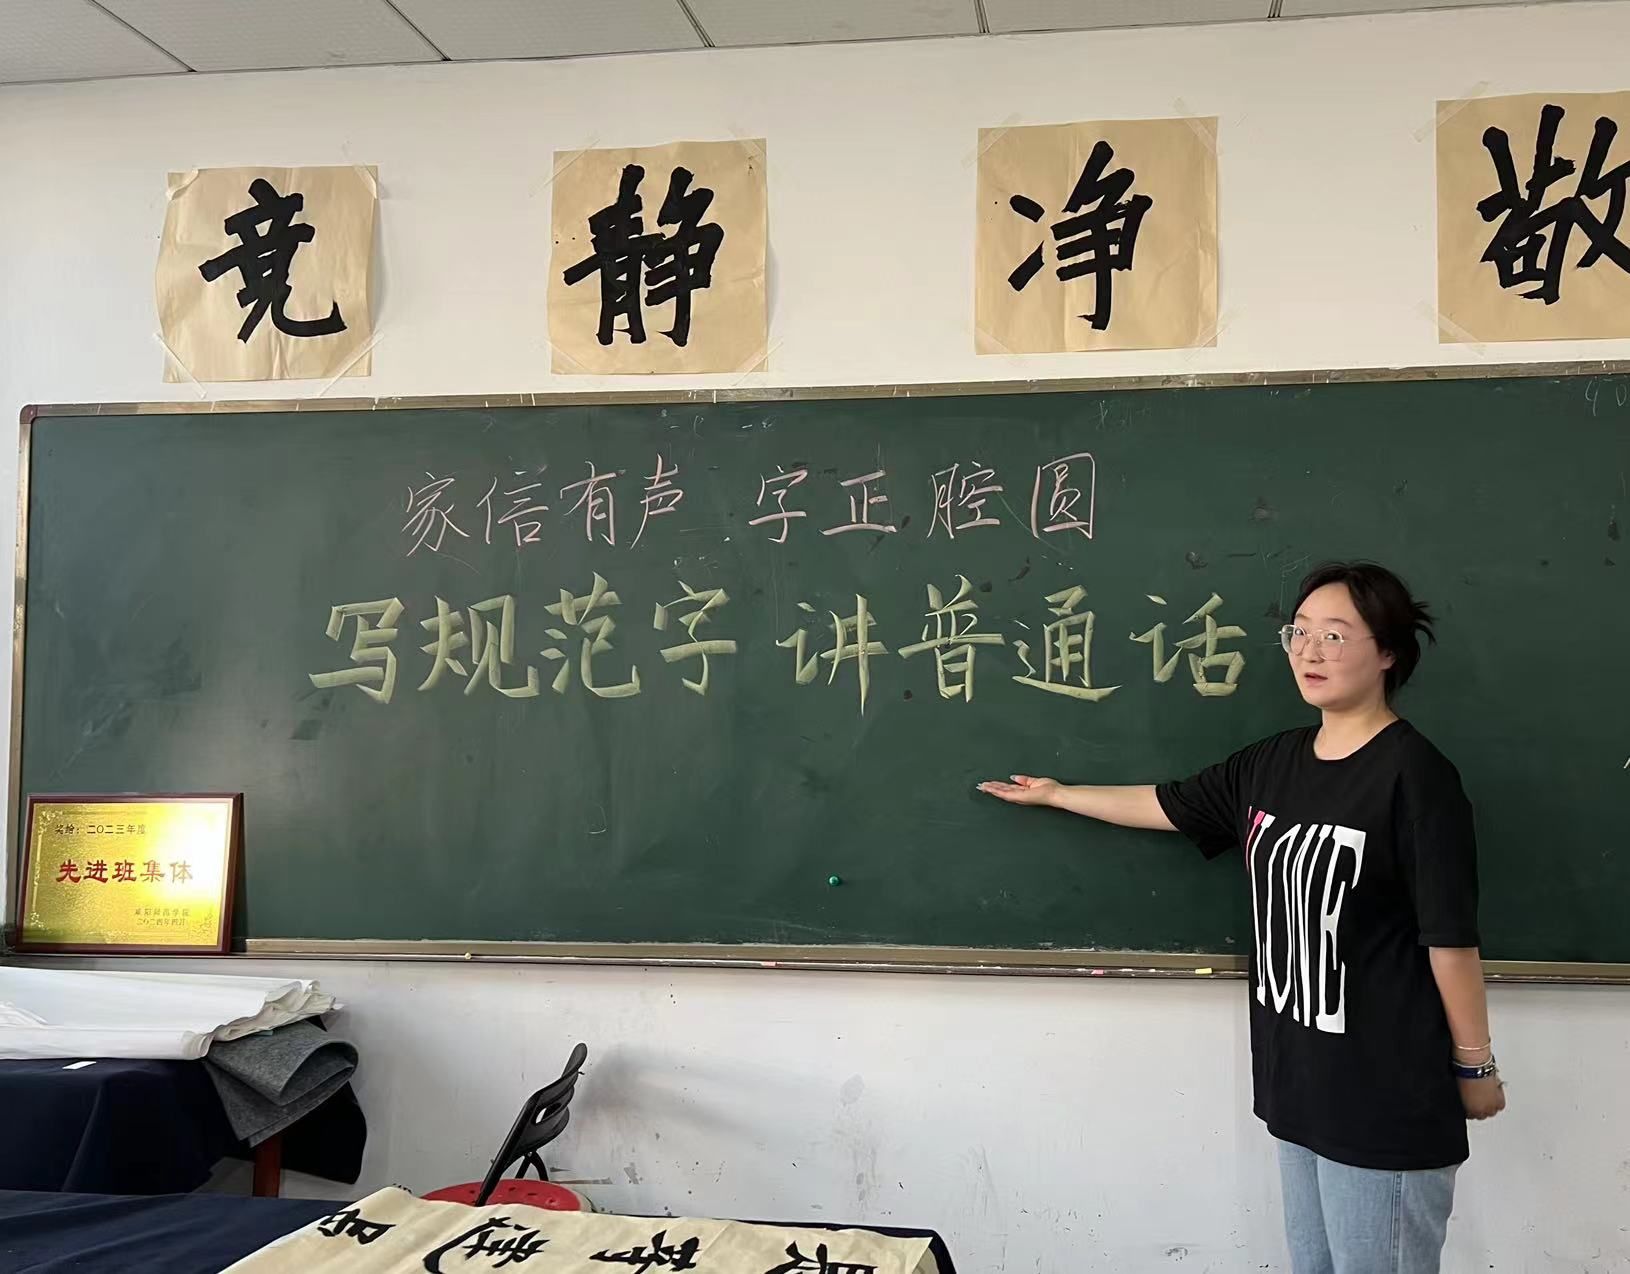 竞 静 净 敬
家信有声 字正腔圆
写规范字 讲普通话
奖给：二〇二三年度
先进班集体
咸阳师范学院
二〇二四年四月
VLONE